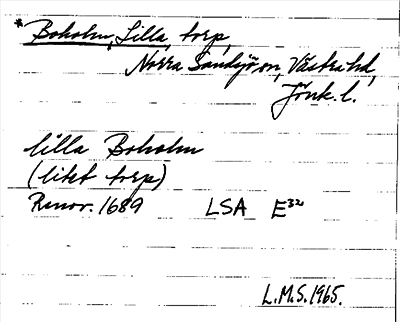 * Boholm, Lilla, torp,
Norra Sandsjö sn, Västra hd,
Jönk. l.
lilla Boholm
(litet torp)
Renov. 1689 LSA E³²
L.M.S. 1965.